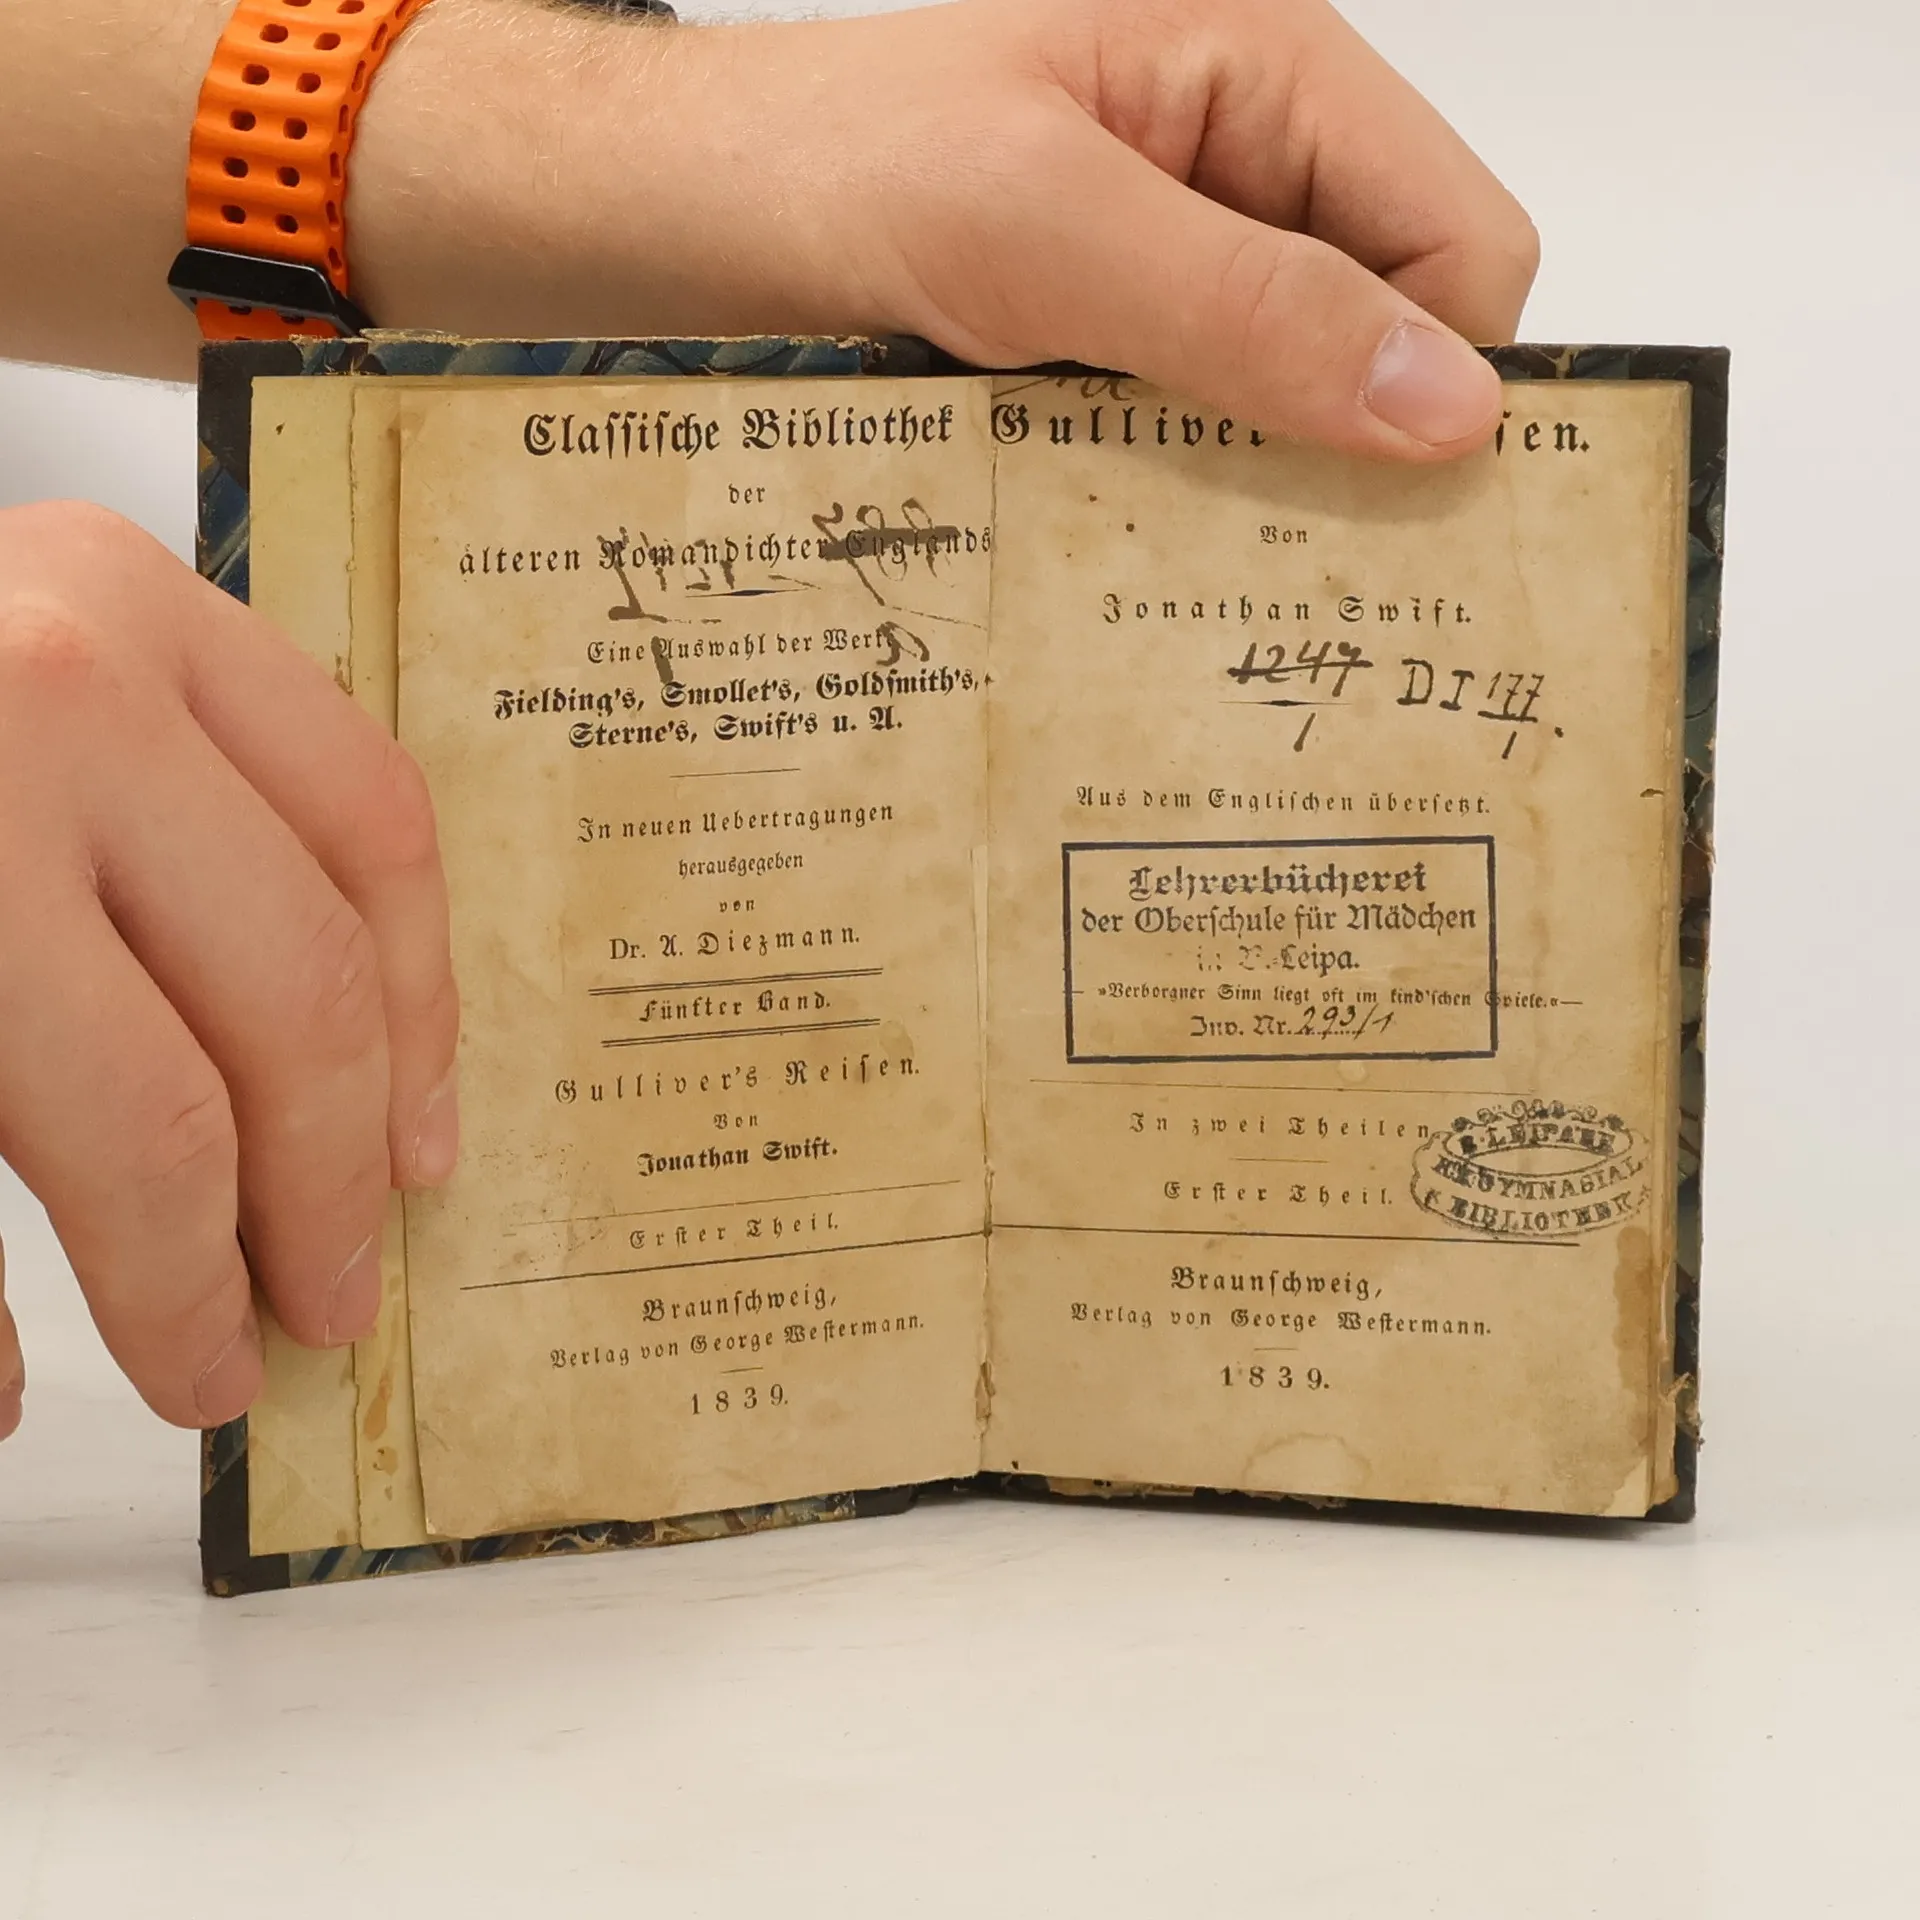 Classische Bibliothek
der
älteren Romandichter Englands
Eine Auswahl der Werke
Fielding's, Smollet's, Goldsmith's,
Sterne's, Swift's u. A.
In neuen Uebertragungen
herausgegeben
von
Dr. A. Diezmann.
Fünfter Band.
Gulliver's Reisen.
Von
Jonathan Swift.
Erster Theil.
Braunschweig,
Verlag von George Westermann.
1839.
Gulliver sen.
Von
Jonathan Swift.
1247 DI 177.
1 1
Aus dem Englischen übersetzt.
Lehrerbücherei
der Oberschule für Mädchen
in B.-Leipa.
»Verborgner Sinn liegt oft im kind'schen Spiele.«
Inv. Nr. 293/1
In zwei Theilen
Erster Theil.
GYMNASIAL
BIBLIOTHEK
Braunschweig,
Verlag von George Westermann.
1839.